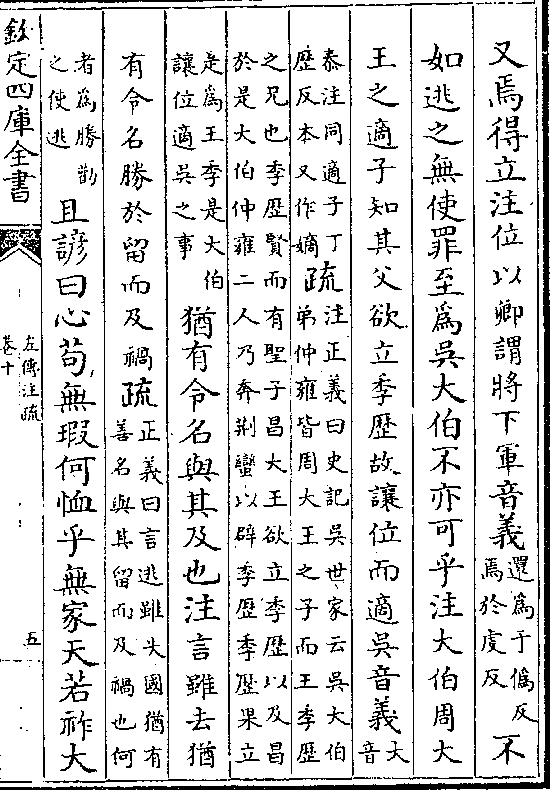 又焉得立注位以卿謂將下軍音義還爲于僞反焉於虔反不
如逃之無使罪至爲吳大伯不亦可乎注大伯周大
王之適子知其父欲立季歴故讓位而適吳音義大音
泰注同適子丁歴反本又作嫡疏注正義曰史記吳世家云吳大伯弟仲雍皆周大王之子而王季歴
之兄也季歴賢而有聖子昌大王欲立季歴以及昌於是大伯仲雍二人乃奔荆蠻以辟季歴季歴果立
是爲王季是大伯讓位適吳之事猶有令名與其及也注言雖去猶
有令名勝於留而及禍疏正義曰言逃雖失國猶有善名與其留而及禍也何
者爲勝勸之使逃且諺曰心苟無瑕何恤乎無家天若祚大
欽定四庫全書
左傳注疏
卷十
五